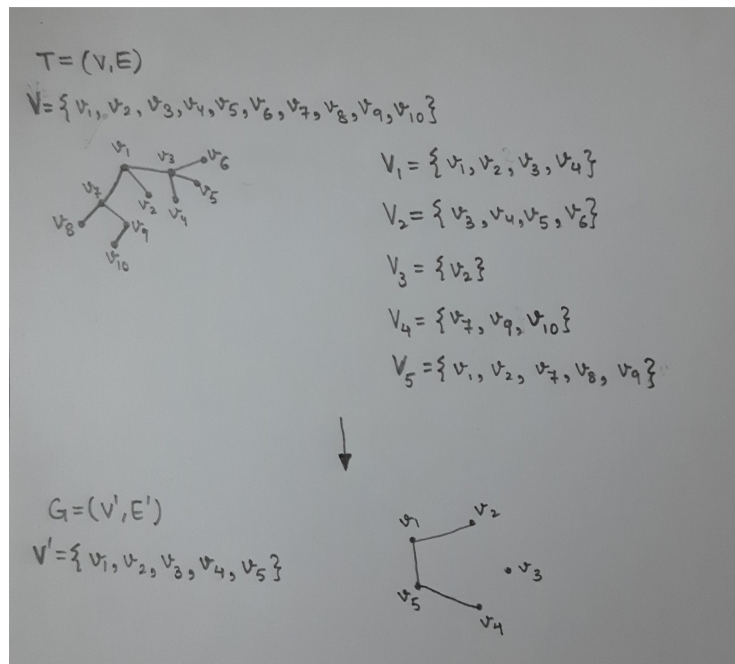 T = (V, E)
V = { v₁, v₂, v₃, v₄, v₅, v₆, v₇, v₈, v₉, v₁₀ }
v₁ v₃ v₆
v₇ v₂ v₄ v₅
v₈ v₉
v₁₀
V₁ = { v₁, v₂, v₃, v₄ }
V₂ = { v₃, v₄, v₅, v₆ }
V₃ = { v₂ }
V₄ = { v₇, v₉, v₁₀ }
V₅ = { v₁, v₂, v₇, v₈, v₉ }
G = (V', E')
V' = { v₁, v₂, v₃, v₄, v₅ }
v₁ v₂
v₃
v₅ v₄